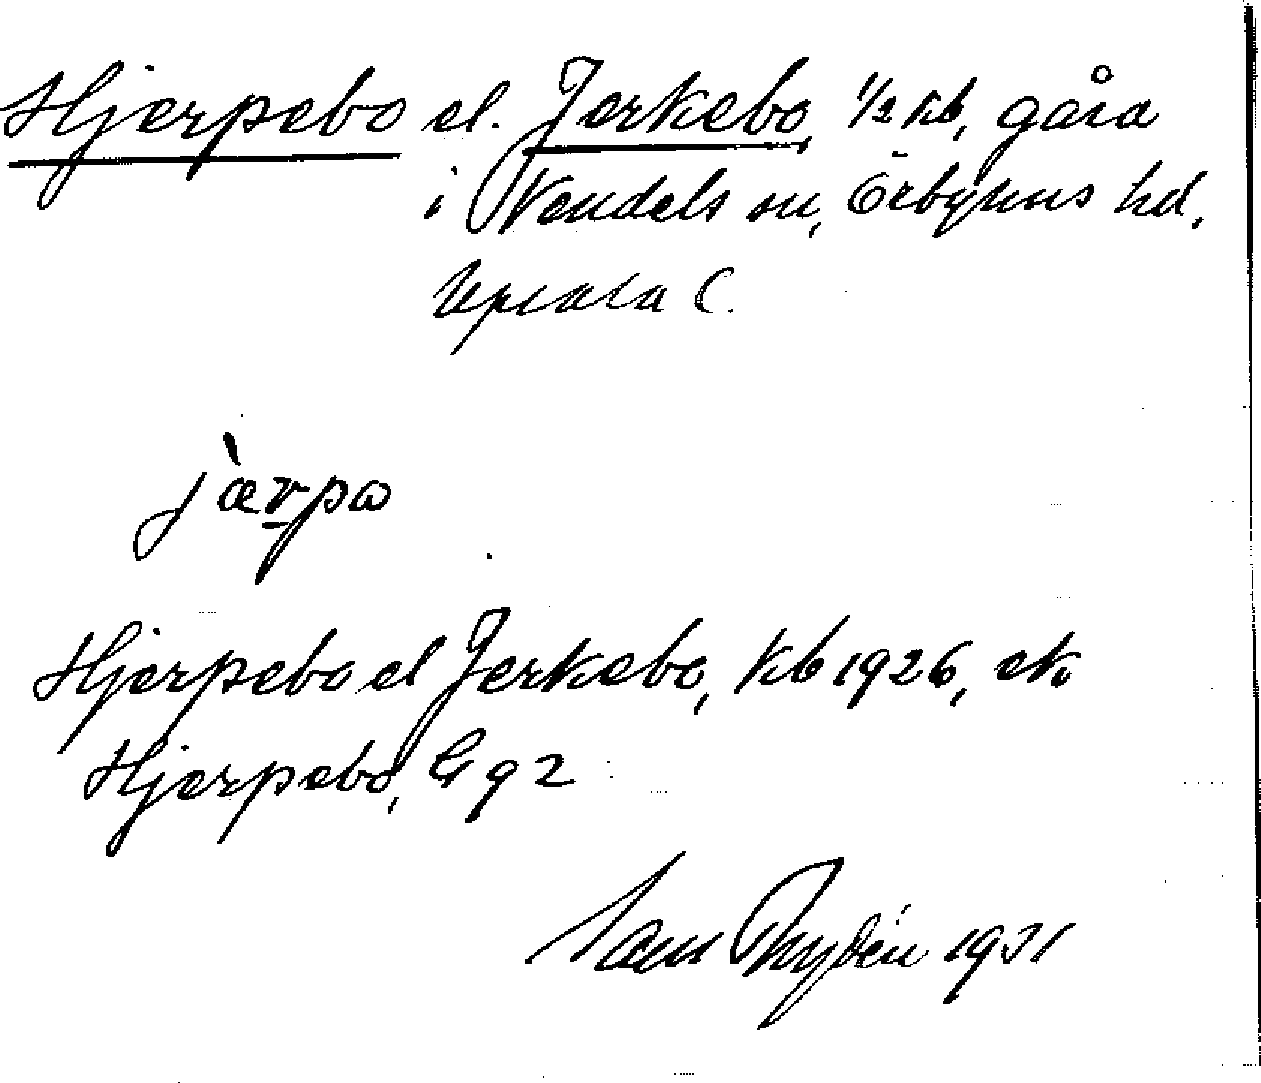 Hjerpebo el. Jerkebo, 1/2 kb, gård
i Vendels sn, Örbyhus hd.
Upsala C.
jàrpo
Hjerpebo el Jerkebo, kb 1926, ek.
Hjerpebo, Gg 2
Sam Rydén 1931